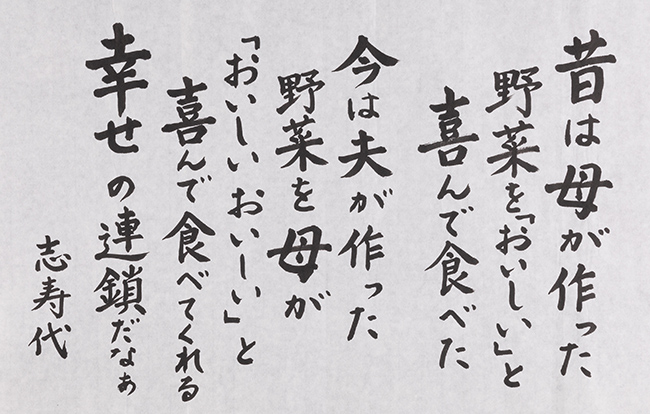 昔は母が作った
野菜を「おいしい」と
喜んで食べた
今は夫が作った
野菜を母が
「おいしいおいしい」と
喜んで食べてくれる
幸せの連鎖だなぁ
志寿代